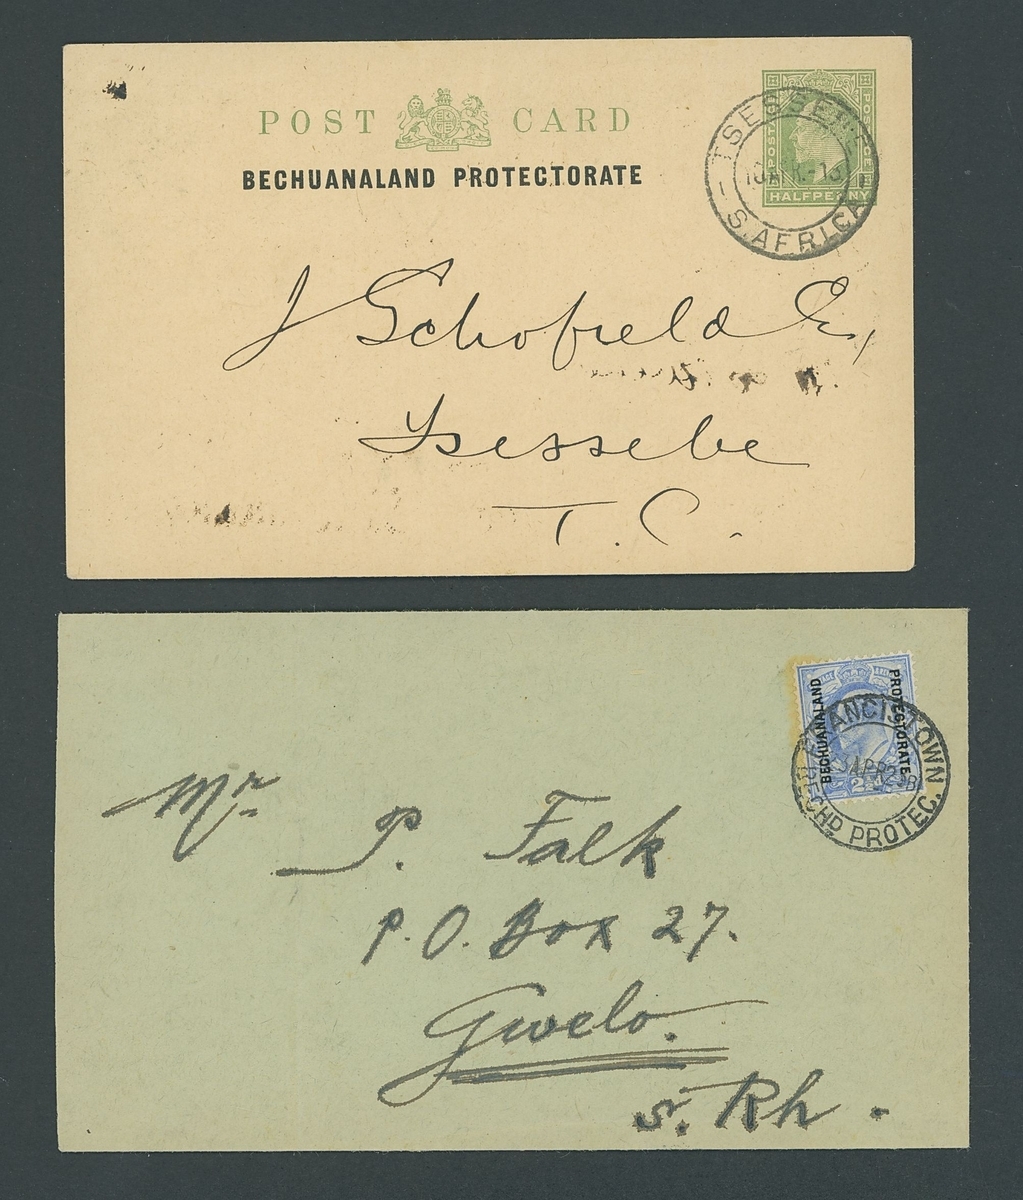 POST CARD
BECHUANALAND PROTECTORATE
POSTAGE
HALFPENNY
TSESSEBE
S. AFRICA
J Schofield Esq,
Tsessebe
T. C.
BECHUANALAND
PROTECTORATE
2½d
FRANCISTOWN
BECHD PROTEC.
Mr
P. Falk
P.O. Box 27.
Gwelo.
S. Rh.